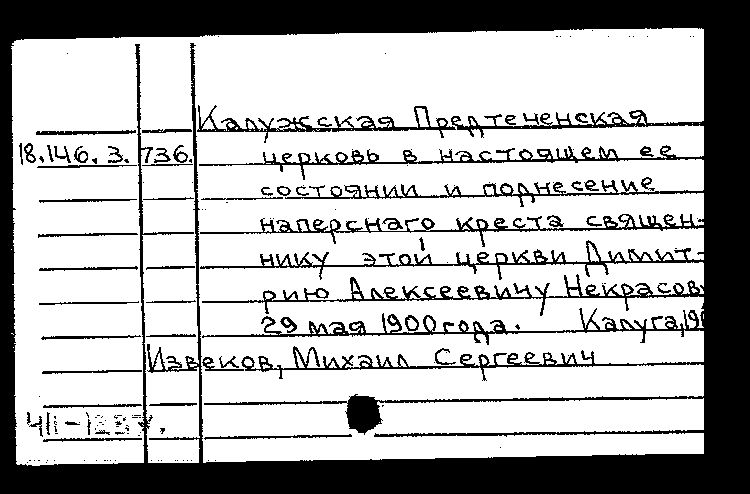 Калужская Предтеченская
18.146.3.736. церковь в настоящем ее
состоянии и поднесение
наперснаго креста священ-
нику этой церкви Димит-
рию Алексеевичу Некрасов
29 мая 1900 года. Калуга, 190
Извеков, Михаил Сергеевич